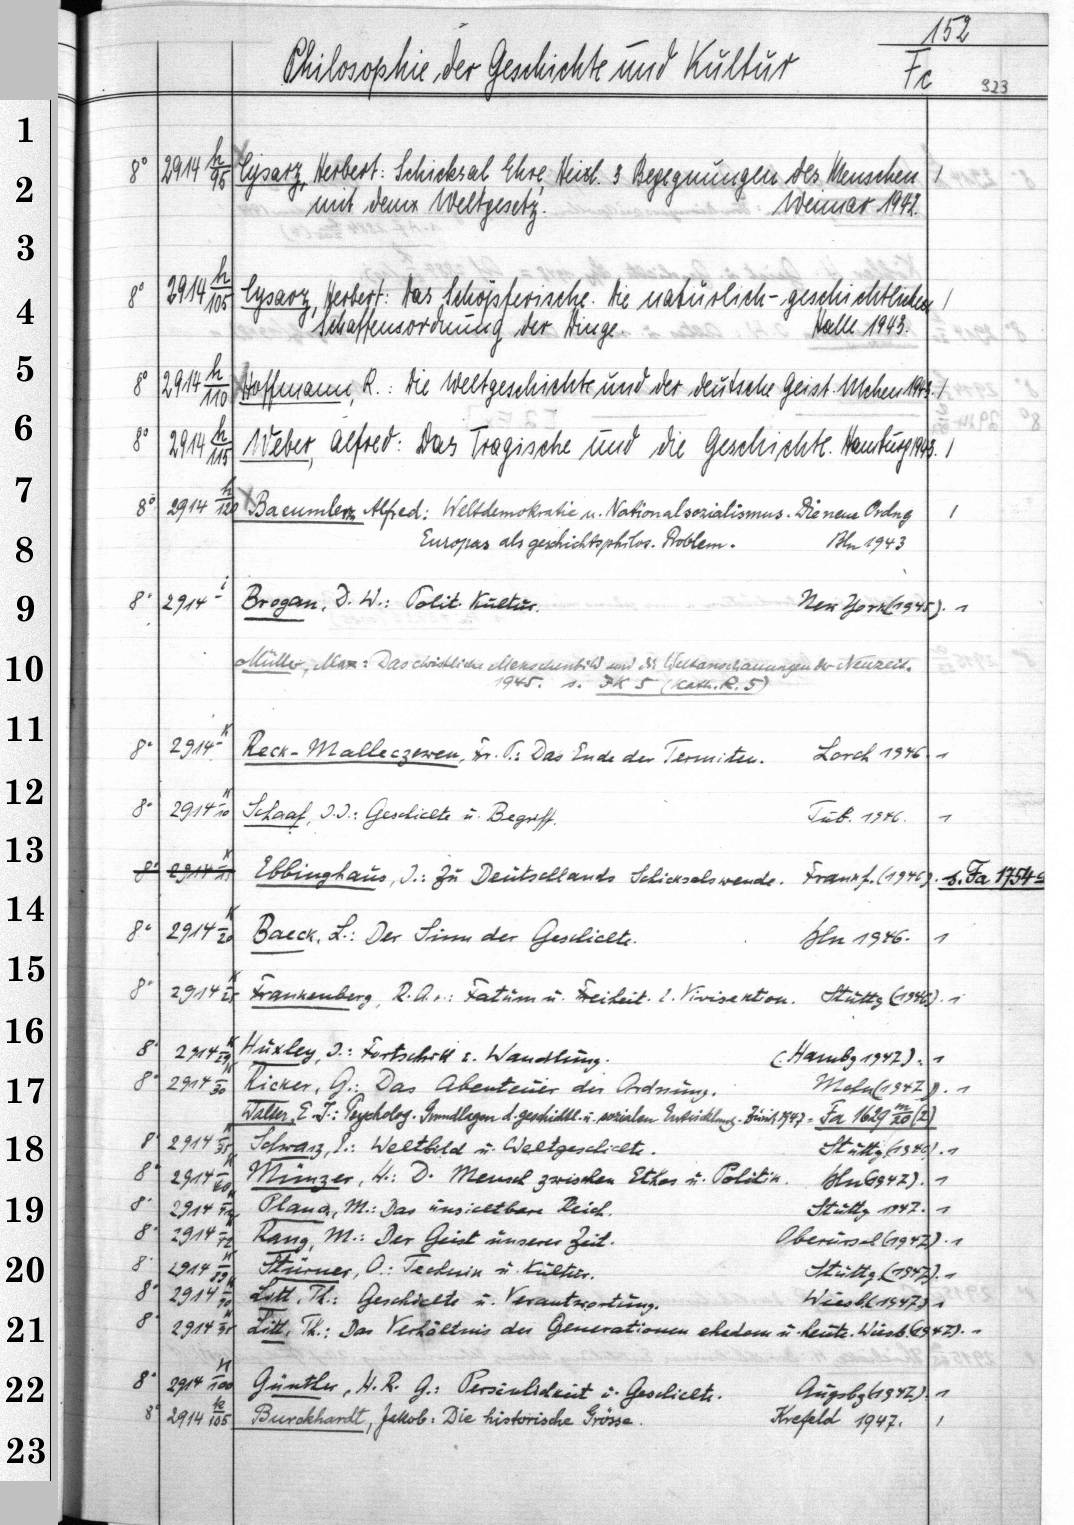 152
Philosophie der Geschichte und Kultur Fc
323
1
8° 2914 h/95 Cysarz, Herbert: Schicksal Ehre Heil. 3 Begegnungen des Menschen 1
2 mit dem Weltgesetz. Weimar 1942.
3
8° 2914 h/105 Cysarz, Herbert: Das Schöpferische. Die natürlich-geschichtlichen 1
4 Schaffensordnung der Dinge. Halle 1943.
5
8° 2914 h/110 Hoffmann, R.: Die Weltgeschichte und der deutsche Geist. Mchen 1943. 1
6
8° 2914 h/115 Weber, Alfred: Das Tragische und die Geschichte. Hamburg 1943. 1
7
8° 2914 h/120 Baeumler, Alfred: Weltdemokratie u. Nationalsozialismus. Die neue Ordng 1
8 Europas als geschichtsphilos. Problem. Bln 1943
9 8° 2914 i Brogan, D. W.: Polit. Kultur. New York (1945). 1
10 Müller, Max: Das christliche Menschenbild und die Weltanschauungen der Neuzeit.
1945. s. FK 5 (Kath. R. 5)
11
8° 2914 K Reck-Malleczewen, Fr. P.: Das Ende der Termiten. Lorch 1946. 1
12
8° 2914 K/10 Schaaf, J.J.: Geschichte u. Begriff. Tüb. 1946. 1
13
8° 2914 K/15 Ebbinghaus, J.: Zu Deutschlands Schicksalswende. Frankf. (1946). s. Fa 1754
14
8° 2914 K/20 Baeck, L.: Der Sinn der Geschichte. Bln 1946. 1
15
8° 2914 K/25 Frankenberg, R.A.: Fatum u. Freiheit. Vivisektion. Stuttg (1946). 1
16
8° 2914 K/29 Huxley, J.: Fortschritt Wandlung. (Hambg 1947). 1
17 8° 2914 K/30 Ricker, G.: Das Abenteuer der Ordnung. (1947). 1
Walter, E. J.: Psycholog. Grundlagen d. geschichtl. u. sozialen Entwicklung. Zürich 1947 = Fa 1629 m/20 (2)
18 8° 2914 K/35 Schwarz, Weltbild u. Weltgeschichte. Stuttg. (1946). 1
8° 2914 K/40 Münzer, D. Mensch zwischen Ethos u. Politik. Bln (1947). 1
19 8° 2914 K Planck, M.: Das unsichtbare Reich. Stuttg 1947. 1
8° 2914 K Rang, M.: Der Geist unserer Zeit. Oberursel (1947). 1
20 8° 2914 K Stürner, O.: Technik u. Kultur. Stuttg. (1947). 1
8° 2914 K/90 Litt, Th.: Geschichte u. Verantwortung. Wiesb. (1947) 1
21 8° 2914 K/95 Litt, Th.: Das Verhältnis der Generationen ehedem u. heute. Wiesb. (1947). 1
22 8° 2914 K/100 Günther, H. R. G.: Persönlichkeit u. Geschichte. Augsbg (1947). 1
8° 2914 k/105 Burckhardt, Jakob: Die historische Grösse. Krefeld 1947. 1
23